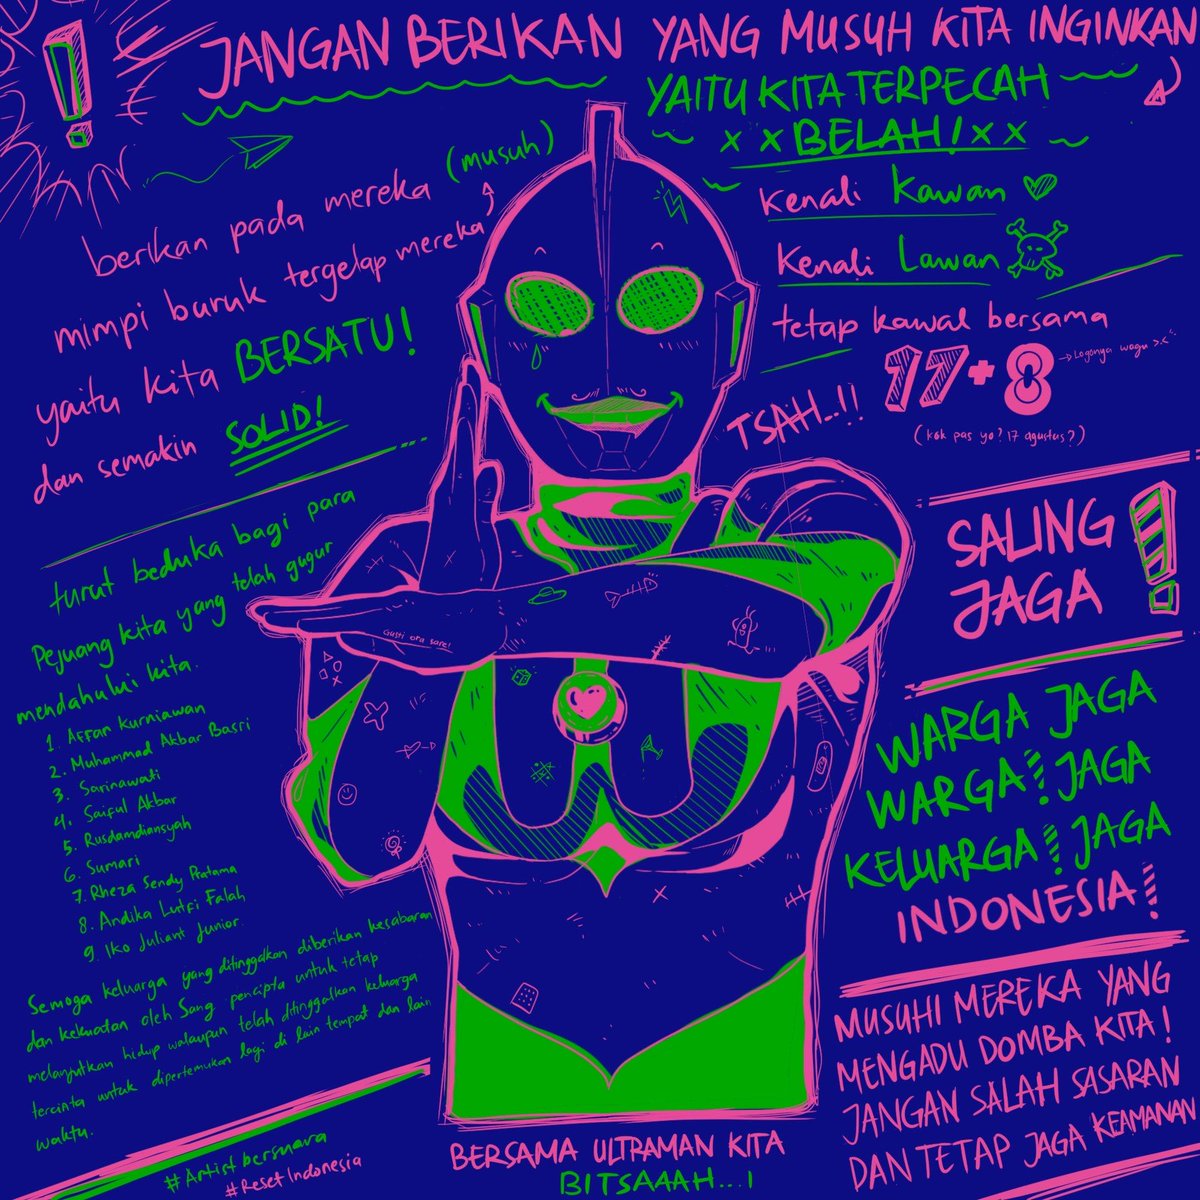 JANGAN BERIKAN YANG MUSUH KITA INGINKAN
YAITU KITA TERPECAH
X X BELAH! X X
berikan pada mereka (musuh)
mimpi buruk tergelap mereka
yaitu kita BERSATU!
dan semakin SOLID!
Kenali Kawan
Kenali Lawan
tetap kawal bersama
17+8
→ Logonya wagu >.<
(kok pas yo? 17 agustus?)
TSAH..!!
turut beduka bagi para
Pejuang kita yang telah gugur
mendahului kita.
1. Affan Kurniawan
2. Muhammad Akbar Basri
3. Sarinawati
4. Saiful Akbar
5. Rusdamdiansyah
6. Sumari
7. Rheza Sendy Pratama
8. Andika Lutfi Falah
9. Iko Juliant Junior.
Semoga keluarga yang ditinggalkan diberikan kesabaran
dan kekuatan oleh Sang pencipta untuk tetap
melanjutkan hidup walaupun telah ditinggalkan keluarga
tercinta untuk dipertemukan lagi di lain tempat dan lain
waktu.
#Artist bersuara
#ResetIndonesia
Gusti ora sare!
SALING
JAGA
WARGA JAGA
WARGA! JAGA
KELUARGA! JAGA
INDONESIA!
MUSUHI MEREKA YANG
MENGADU DOMBA KITA!
JANGAN SALAH SASARAN
DAN TETAP JAGA KEAMANAN
BERSAMA ULTRAMAN KITA
BITSAAAH...!